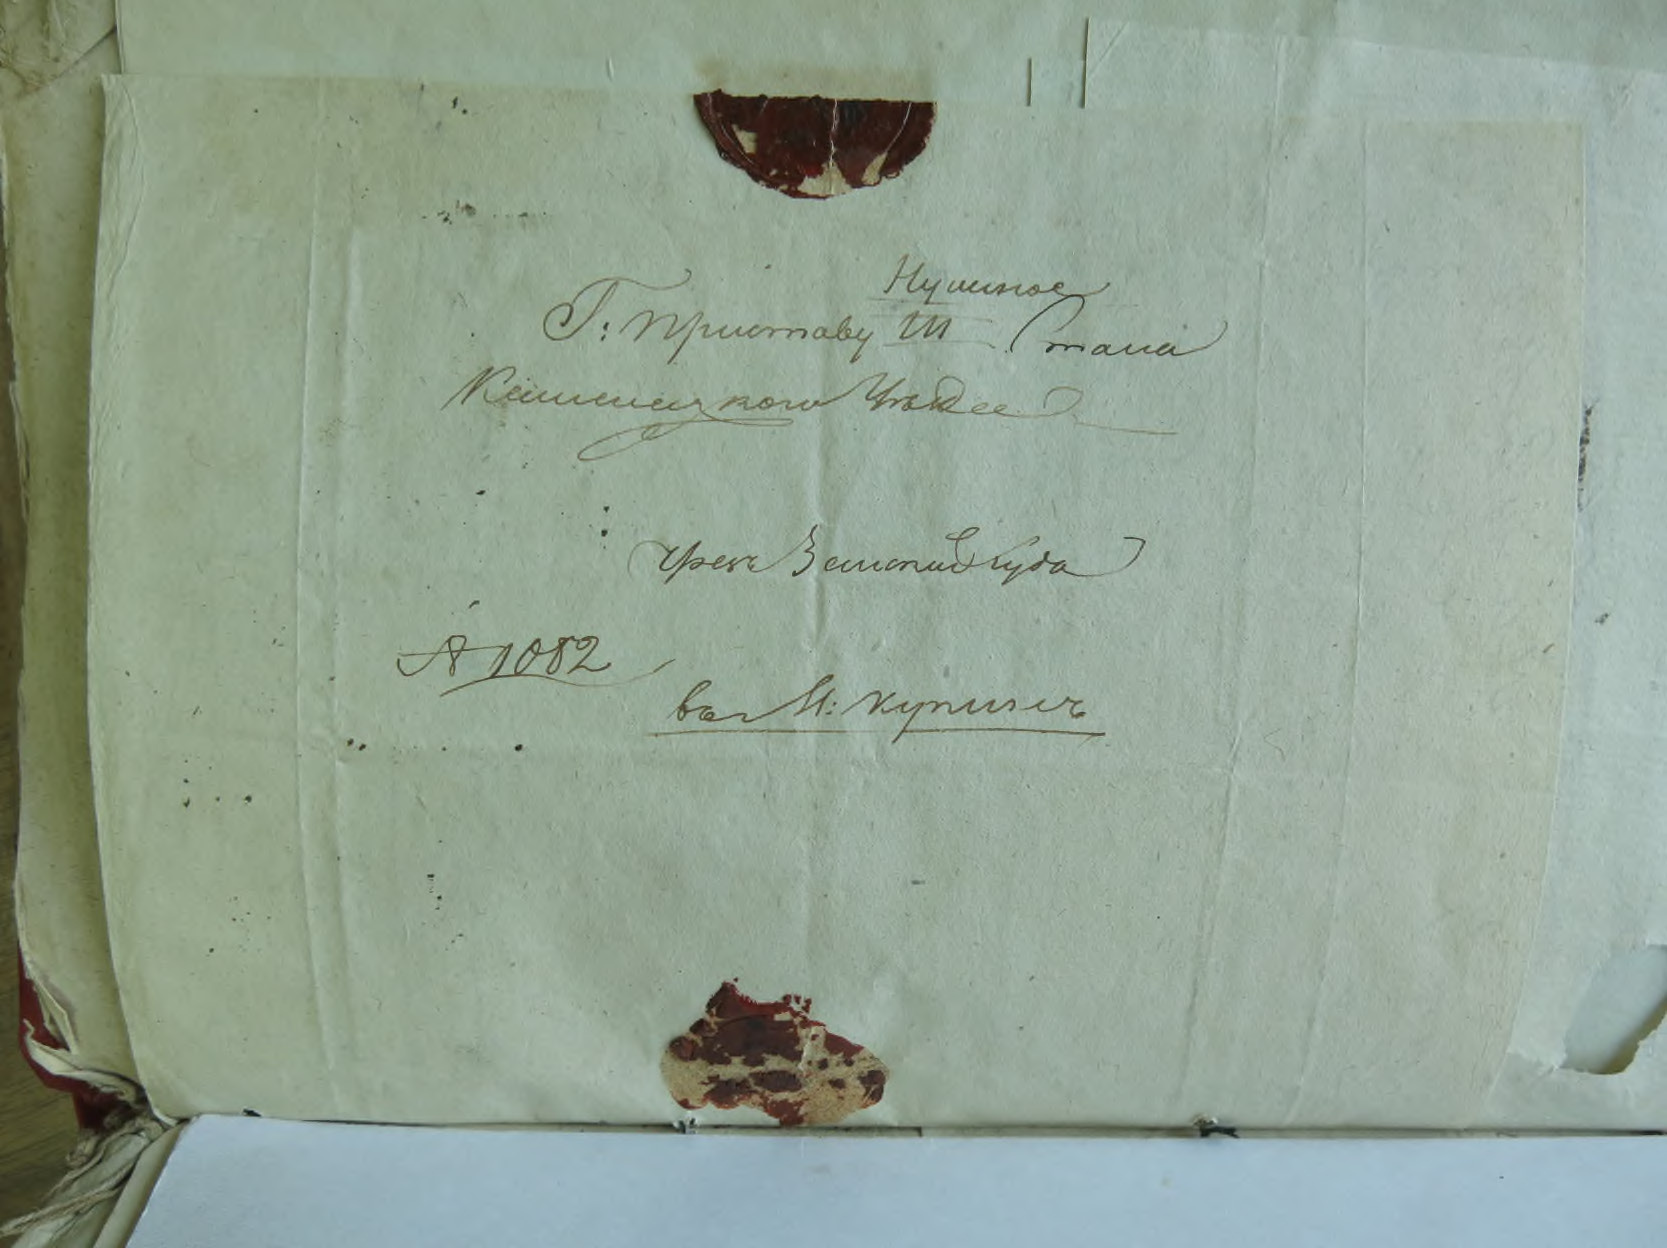 Нужное
Г: Приставу III Стана
Каменецкого Уезда
чрезъ Земский Суда
№ 1082
въ М: Купинъ